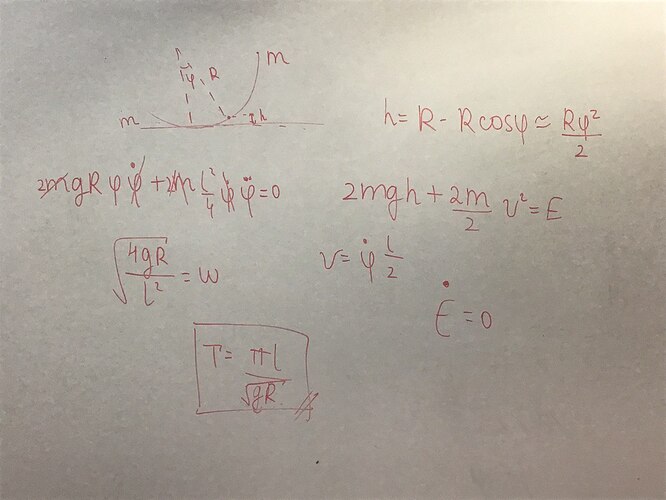 φ R m
m h
h = R - R cosφ ≃ Rφ²/2
2mgRφφ̇ + 2m l²/4 φ̇ φ̈ = 0
2mgh + 2m/2 v² = E
√(4gR/l²) = w
v = φ̇ l/2
Ė = 0
T = πl/√gR